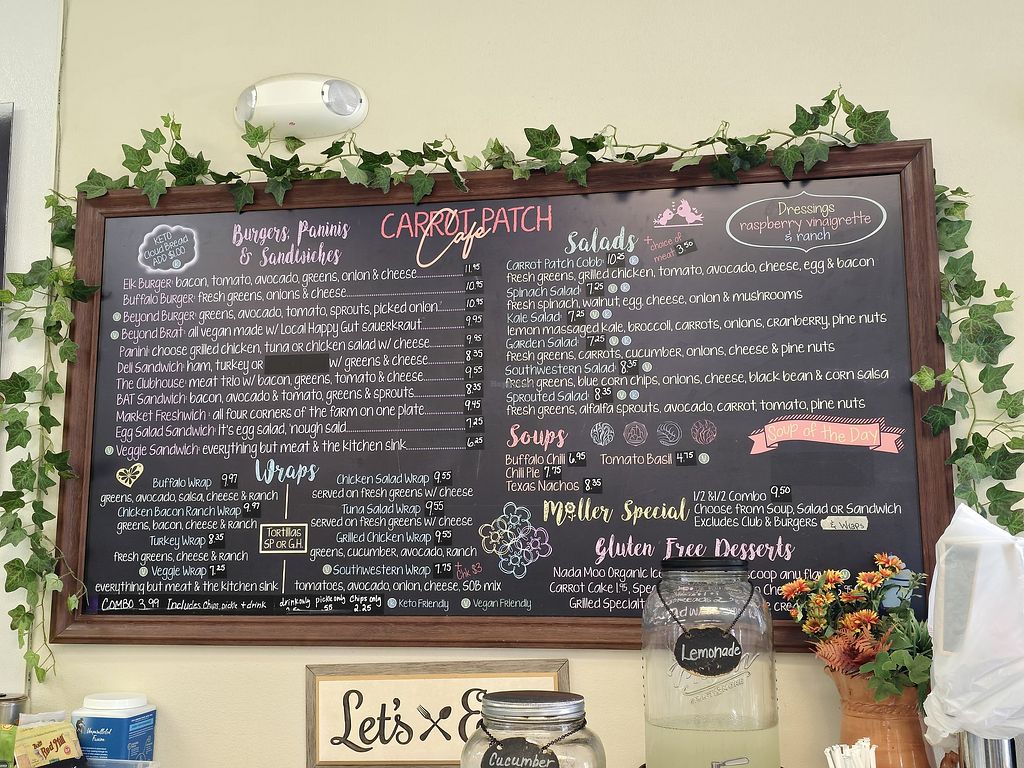 CARROT PATCH
Cafe
KETO
Cloud Bread
ADD $1.00
K
Burgers, Paninis
& Sandwiches
Elk Burger: bacon, tomato, avocado, greens, onion & cheese 11.95
Buffalo Burger: fresh greens, onions & cheese 10.95
V Beyond Burger: greens, avocado, tomato, sprouts, picked onion 10.95
V Beyond Brat: all vegan made w/ Local Happy Gut sauerkraut 9.95
Panini: choose grilled chicken, tuna or chicken salad w/ cheese 9.95
Deli Sandwich: ham, turkey or w/ greens & cheese 8.35
The Clubhouse: meat trio w/ bacon, greens, tomato & cheese 9.55
BAT Sandwich: bacon, avocado & tomato, greens & sprouts 8.35
Market Freshwich: all four corners of the farm on one plate 9.45
Egg Salad Sandwich: it's egg salad, 'nough said 7.25
V Veggie Sandwich: everything but meat & the kitchen sink 6.25
Wraps
Buffalo Wrap 9.97
greens, avocado, salsa, cheese & ranch
Chicken Bacon Ranch Wrap 9.97
greens, bacon, cheese & ranch
Turkey Wrap 8.35
fresh greens, cheese & ranch
V Veggie Wrap 7.25
everything but meat & the kitchen sink
Tortillas
SP or G.H.
Chicken Salad Wrap 9.55
served on fresh greens w/ cheese
Tuna Salad Wrap 9.55
served on fresh greens w/ cheese
Grilled Chicken Wrap 9.55
greens, cucumber, avocado, ranch
V Southwestern Wrap 7.75 + Chk $3
tomatoes, avocado, onion, cheese, SOB mix
COMBO 3.99 Includes chips, pickle + drink
drink only pickle only .55 Chips only 2.25
K Keto Friendly V Vegan Friendly
Salads
+ choice of
meat 3.50
Dressings
raspberry vinaigrette
& ranch
Carrot Patch Cobb: 10.25 K
fresh greens, grilled chicken, tomato, avocado, cheese, egg & bacon
Spinach Salad: 7.25 V K
fresh spinach, walnut, egg, cheese, onion & mushrooms
Kale Salad: 7.25 V K
lemon massaged kale, broccoli, carrots, onions, cranberry, pine nuts
Garden Salad: 7.25 V K
fresh greens, carrots, cucumber, onions, cheese & pine nuts
Southwestern Salad: 8.35 V
fresh greens, blue corn chips, onions, cheese, black bean & corn salsa
Sprouted Salad: 8.35 V K
fresh greens, alfalfa sprouts, avocado, carrot, tomato, pine nuts
Soups
Soup of the Day
Buffalo Chili 6.95 Tomato Basil 4.75 V
Chili Pie 7.75
Texas Nachos 8.35
Moller Special
1/2 & 1/2 Combo 9.50
Choose from Soup, Salad or Sandwich
Excludes Club & Burgers & Wraps
Gluten Free Desserts
Nada Moo Organic Ice scoop any flavor
Carrot Cake
Grilled
Lemonade
Let's
Cucumber
Red Mill